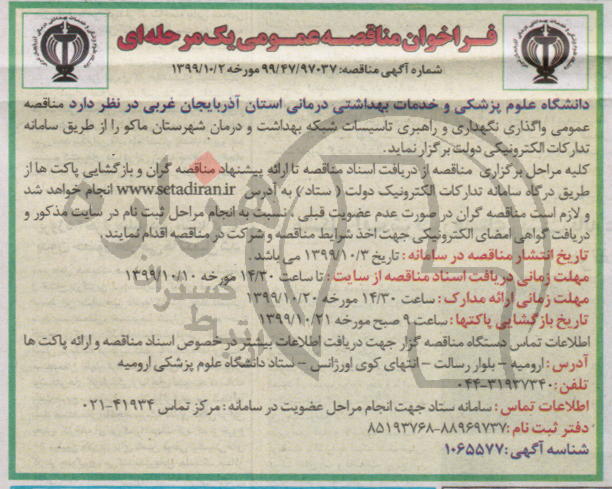 فراخوان مناقصه عمومی یک مرحله‌ای
شماره آگهی مناقصه: ۹۹/۴۷/۹۷۰۳۷ مورخه ۱۳۹۹/۱۰/۲
دانشگاه علوم پزشکی و خدمات بهداشتی درمانی استان آذربایجان غربی در نظر دارد مناقصه
عمومی واگذاری نگهداری و راهبری تاسیسات شبکه بهداشت و درمان شهرستان ماکو را از طریق سامانه
تدارکات الکترونیکی دولت برگزار نماید.
کلیه مراحل برگزاری مناقصه از دریافت اسناد مناقصه تا ارائه پیشنهاد مناقصه گران و بازگشایی پاکت ها از
طریق درگاه سامانه تدارکات الکترونیک دولت ( ستاد ) به آدرس www.setadiran.ir انجام خواهد شد
و لازم است مناقصه گران در صورت عدم عضویت قبلی ، نسبت به انجام مراحل ثبت نام در سایت مذکور و
دریافت گواهی امضای الکترونیکی جهت اخذ شرایط مناقصه و شرکت در مناقصه اقدام نمایند.
تاریخ انتشار مناقصه در سامانه : تاریخ ۱۳۹۹/۱۰/۳ می باشد.
مهلت زمانی دریافت اسناد مناقصه از سایت : تا ساعت ۱۴/۳۰ مورخه ۱۳۹۹/۱۰/۱۰
مهلت زمانی ارائه مدارک : ساعت ۱۴/۳۰ مورخه ۱۳۹۹/۱۰/۲۰
تاریخ بازگشایی پاکتها : ساعت ۹ صبح مورخه ۱۳۹۹/۱۰/۲۱
اطلاعات تماس دستگاه مناقصه گزار جهت دریافت اطلاعات بیشتر در خصوص اسناد مناقصه و ارائه پاکت ها
آدرس : ارومیه – بلوار رسالت – انتهای کوی اورژانس – ستاد دانشگاه علوم پزشکی ارومیه
تلفن : ۳۱۹۳۷۳۴۰-۰۴۴
اطلاعات تماس : سامانه ستاد جهت انجام مراحل عضویت در سامانه : مرکز تماس ۴۱۹۳۴-۰۲۱
دفتر ثبت نام : ۸۸۹۶۹۷۳۷-۸۵۱۹۳۷۶۸
شناسه آگهی : ۱۰۶۵۵۷۷